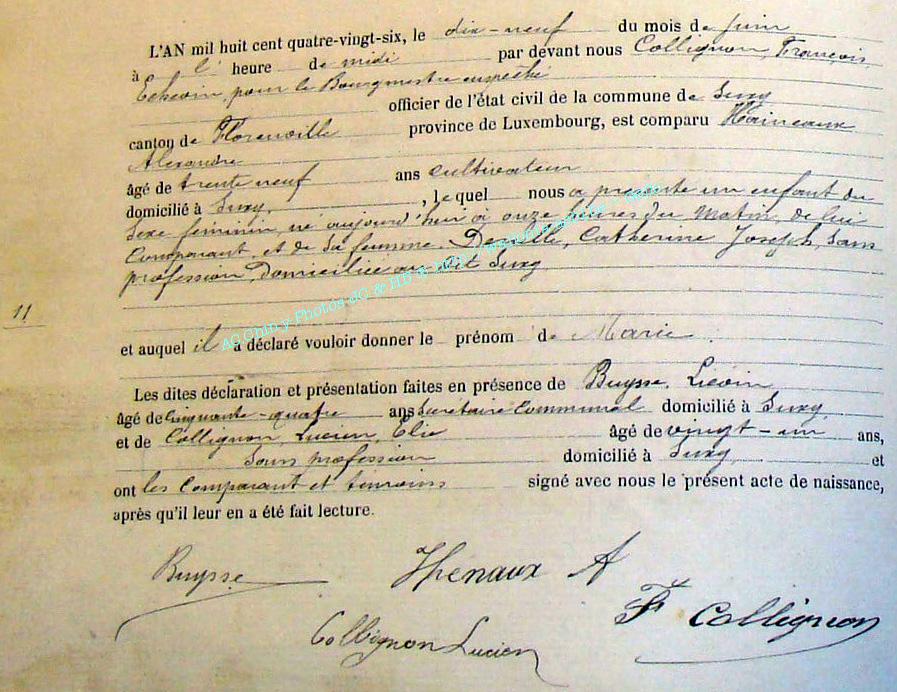 L'AN mil huit cent quatre-vingt-six, le dix-neuf du mois de juin
à l' heure de midi par devant nous Collignon, François,
Echevin, pour le Bourgmestre empêché
officier de l'état civil de la commune de Suxy
canton de Florenville province de Luxembourg, est comparu Haineaux
Alexandre
âgé de trente neuf ans cultivateur
domicilié à Suxy, , lequel nous a présenté un enfant du
sexe féminin, né aujourd'hui à onze heures du matin, de lui
comparant, et de sa femme, Catherine Joseph, sans
profession, domiciliée au dit Suxy
11
et auquel il a déclaré vouloir donner le prénom de Marie
Les dites déclaration et présentation faites en présence de Buysse, Liévin
âgé de cinquante-quatre ans Secrétaire Communal domicilié à Suxy,
et de Collignon, Lucien, Elie âgé de vingt-un ans,
sans profession domicilié à Suxy, et
ont les comparant et témoins signé avec nous le présent acte de naissance,
après qu'il leur en a été fait lecture.
Buysse
Hénaux A
F Collignon
Collignon Lucien
AC Chiny Photos JC &